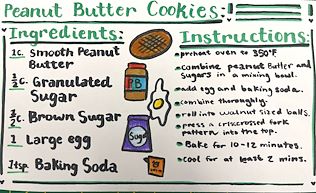 Peanut Butter Cookies:
Ingredients:
1c. Smooth Peanut
Butter
1/2c. Granulated
Sugar
1/2c. Brown Sugar
1 Large egg
1tsp Baking Soda
PB
Sugar
Instructions:
•preheat oven to 350°F
•combine peanut butter and
sugars in a mixing bowl.
•add egg and baking soda.
combine thoroughly.
•roll into walnut sized balls.
•press a crisscrossed fork
pattern into the top.
•Bake for 10-12 minutes.
•cool for at least 2 mins.